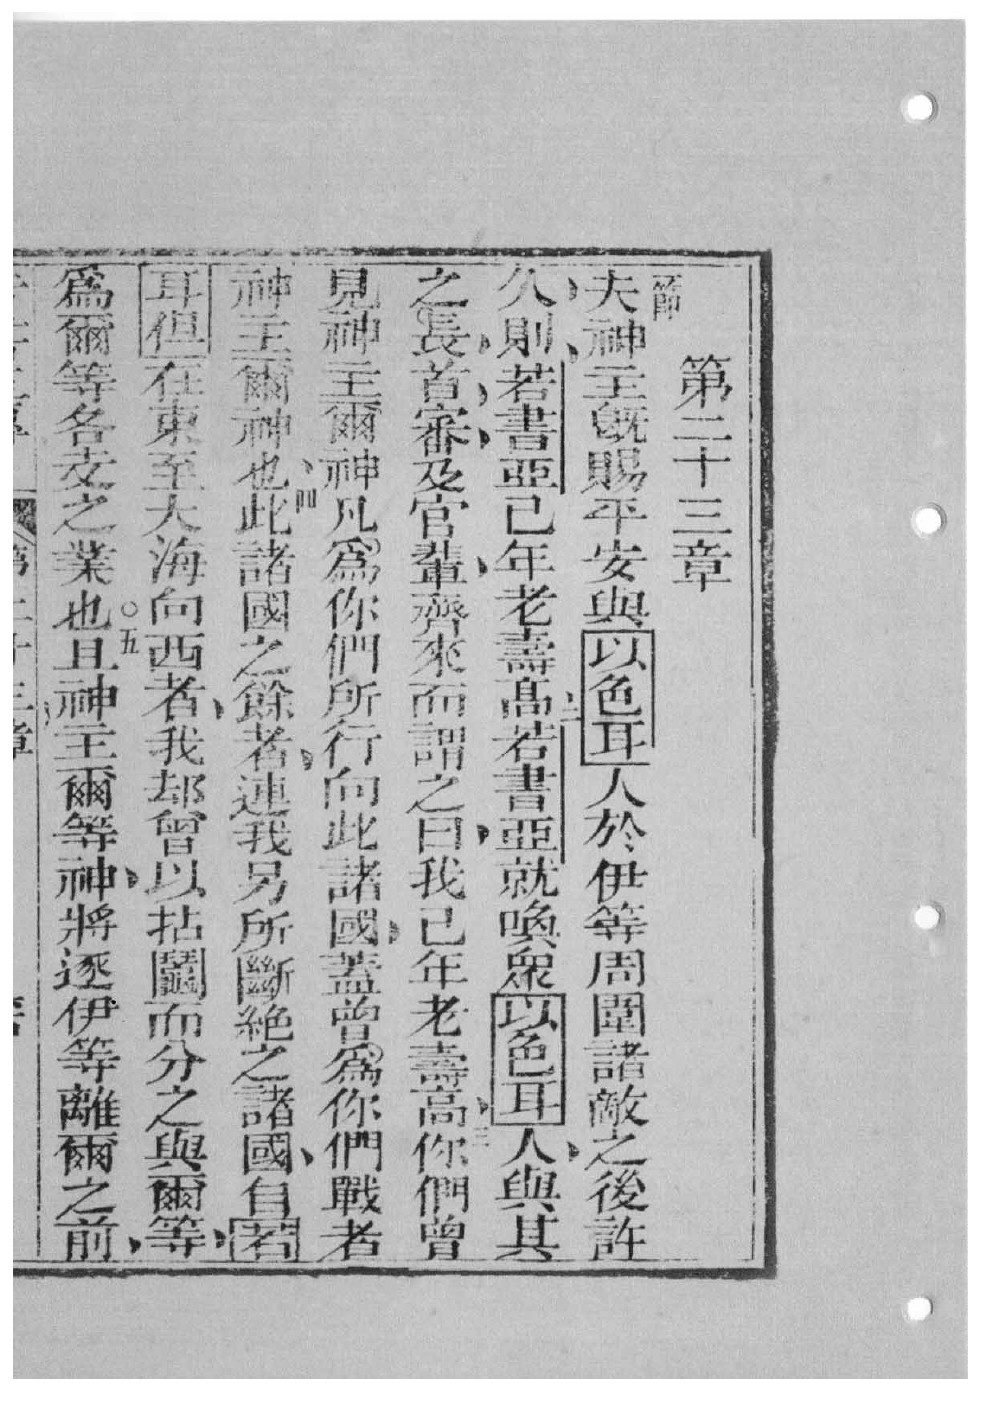 第二十三章
一節
夫神主旣賜平安與以色耳人於伊等周圍諸敵之後許
久則若書亞已年老壽髙二若書亞就喚衆以色耳人與其
之長首審及官輩齊來而謂之曰我已年老壽高三你們曾
見神主爾神凡爲你們所行向此諸國蓋曾爲你們戰者
神主爾神也四此諸國之餘者連我另所斷絕之諸國自若
耳但在東至大海向西者我却曾以拈鬮而分之與爾等
爲爾等各支之業也○五且神主爾等神將逐伊等離爾之前
第二十三章